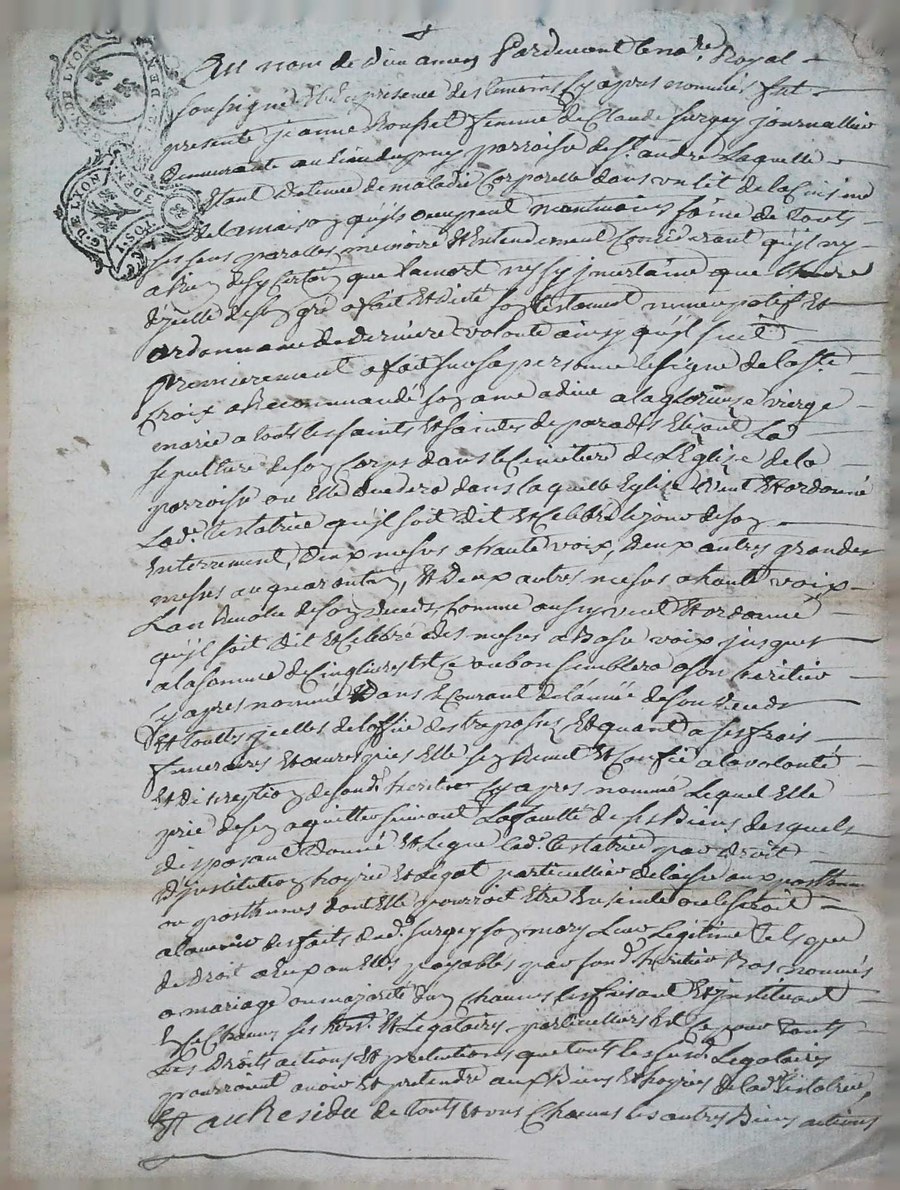 Au nom de dieu amen Pardevant le no.re Royal
soussigné Et En presence des temoins Cy apres nommés fut
presente jeanne Rousset femme de Claude Surgey journallier
demeurante au lieu du puy parroisse de St. andré Laquelle
Etant detenue de maladie Corporelle dans un lit de la Cuisine
de la maison qu'ils occupent neantmoins saine de touts
ses sens parolles memoire Et Entendement Considerant qu'il n'y
a rien de sy Certain que la mort ny sy incertaine que L'heure
d'jcelle de son gré a fait Et dicté son testament nuncupatif Et
ordonnance de derniere volonté ainsy qu'il suit
Premierement a fait sur sa personne le signe de la Ste
Croix a Recommandé son ame a dieu a la glorieuse vierge
marie a touts les saints Et saintes de paradis Elisant La
sepulture de son Corps dans le Cimetiere de L'Eglise de la
parroisse ou Elle decedera dans laquelle Eglise veut Et ordonne
Lad.e testatrice qu'il soit dit Et Celebré le jour de son
Enterrement, deux messes a haute voix, deux autres grandes
messes au quarantain, Et deux autres messes a haute voix
L'an Revolu de son deceds, Comme aussy veut Et ordonne
qu'il soit dit Et Celebré des messes a Basse voix jusques
a la somme de Cinq livres Et Ce ou bon semblera a son heritier
Cy apres nommé dans le Courant de l'année de son deceds
Et touttes quelles de l'office des trepassés, Et quant a ses frais
funeraires Et œuvres pies Elle s'en Remet Et Confie a la volonté
Et discretion de sond. heritier Cy apres nommé Lequel Elle
prie de s'en aquitter suivant La faculté de ses Biens desquels
disposant donne Et Legue lad.e testatrice par droit
d'jnstitution hoyrie Et Legat particullier delaisse aux posthume
ou posthumes dont Elle pourroit Etre Enceinte ou le seroit
a l'avenir des faits dud. Surgey son mary Leur Legitime telle que
de droit a Eux ou Elles payables par sond. heritier Bas nommés
a mariage ou majorité d'un Chacun les faisant Et jnstituant
Et Ce Chacun ses hers. Et Legataires particulliers Et Ce pour touts
Les droits actions Et pretentions que touts les susd. Legataires
pourroient avoir Et pretendre aux Biens Et hoyries de lad.e testatrice,
Et au Residu de touts Et uns Chacuns les autres Biens actions